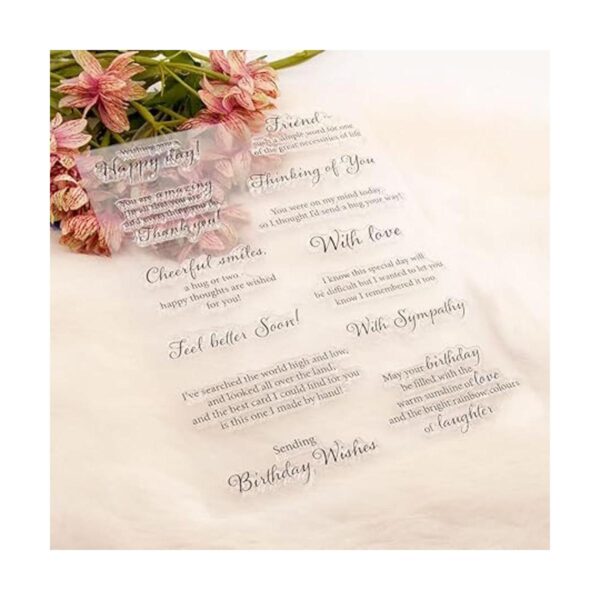 Wishing you
Happy day!
You are amazing
in all that you are
and everything you do
Thank you!
Cheerful smiles,
a hug or two
happy thoughts are wished
for you!
Feel better Soon!
I've searched the world high and low,
and looked all over the land,
and the best card I could find for you
is this one I made by hand!
Sending
Birthday Wishes
Friend
such a simple word for one
of the great necessities of life
Thinking of You
You were on my mind today
so I thought I'd send a hug your way!
With love
I know this special day will
be difficult but I wanted to let you
know I remembered it too.
With Sympathy
May your birthday
be filled with the
warm sunshine of love
and the bright rainbow colours
of laughter